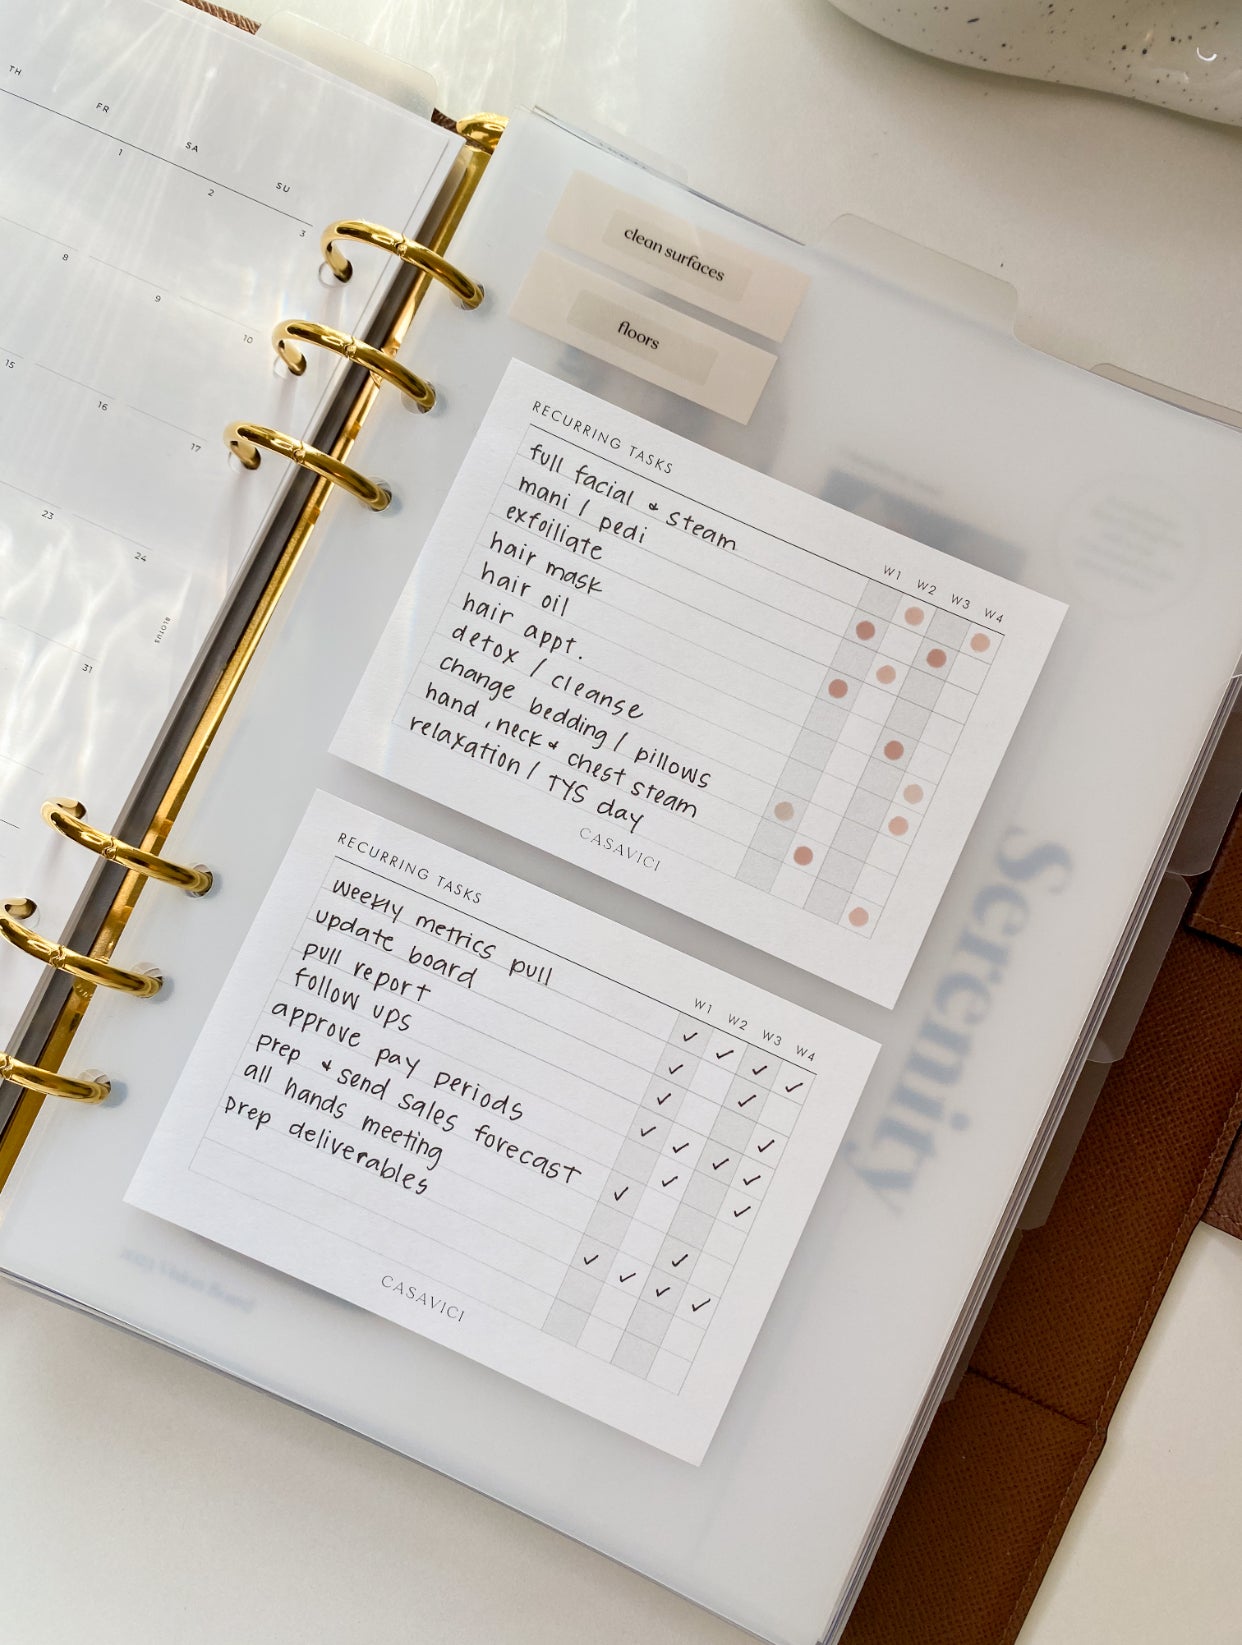 TH FR SA SU
1 2 3
8 9 10
15 16 17
23 24
31
BLOTUS
clean surfaces
floors
RECURRING TASKS
W1 W2 W3 W4
full facial & steam
mani / pedi
exfoiliate
hair mask
hair oil
hair appt.
detox / cleanse
change bedding / pillows
hand, neck & chest steam
relaxation / TYS day
CASAVICI
RECURRING TASKS
W1 W2 W3 W4
weekly metrics pull
update board
pull report
follow ups
approve pay periods
prep & send sales forecast
all hands meeting
prep deliverables
CASAVICI
Serenity